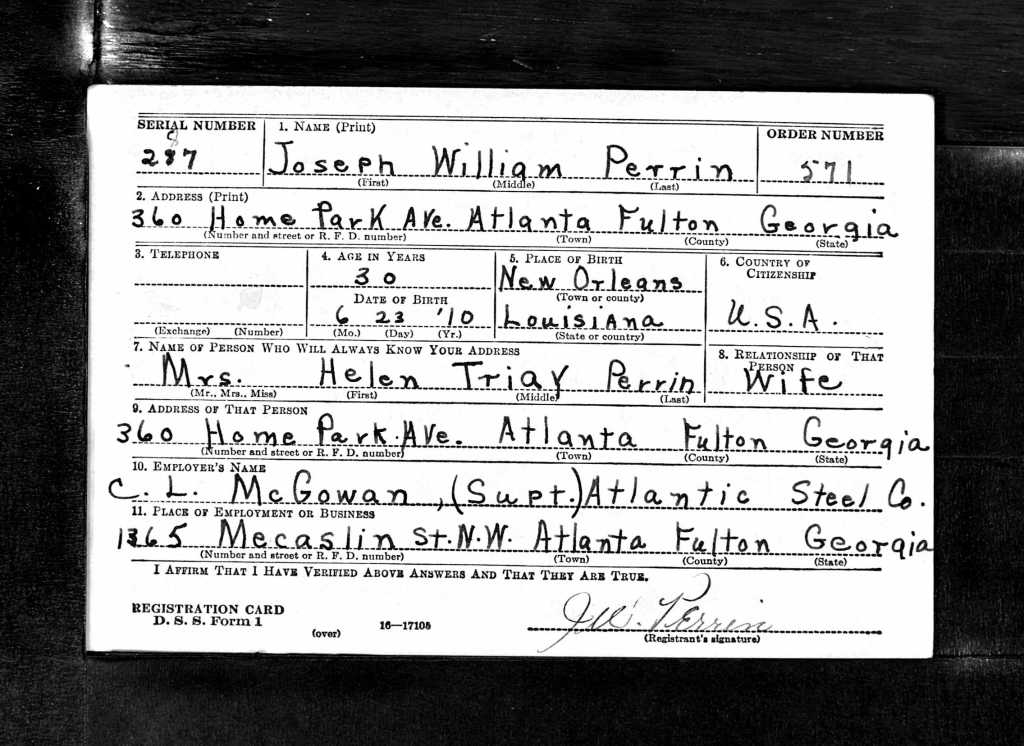 SERIAL NUMBER 1. NAME (Print) ORDER NUMBER
287 Joseph William Perrin 571
(First) (Middle) (Last)
2. ADDRESS (Print)
360 Home Park Ave. Atlanta Fulton Georgia
(Number and street or R. F. D. number) (Town) (County) (State)
3. TELEPHONE 4. AGE IN YEARS 5. PLACE OF BIRTH 6. COUNTRY OF CITIZENSHIP
30 New Orleans
DATE OF BIRTH (Town or county)
6 23 '10 Louisiana U.S.A.
(Exchange) (Number) (Mo.) (Day) (Yr.) (State or country)
7. NAME OF PERSON WHO WILL ALWAYS KNOW YOUR ADDRESS 8. RELATIONSHIP OF THAT PERSON
Mrs. Helen Triay Perrin Wife
(Mr., Mrs., Miss) (First) (Middle) (Last)
9. ADDRESS OF THAT PERSON
360 Home Park Ave. Atlanta Fulton Georgia
(Number and street or R. F. D. number) (Town) (County) (State)
10. EMPLOYER'S NAME
C. L. McGowan, (Supt.) Atlantic Steel Co.
11. PLACE OF EMPLOYMENT OR BUSINESS
1365 Mecaslin St. N.W. Atlanta Fulton Georgia
(Number and street or R. F. D. number) (Town) (County) (State)
I AFFIRM THAT I HAVE VERIFIED ABOVE ANSWERS AND THAT THEY ARE TRUE.
REGISTRATION CARD
D. S. S. Form 1 (over) 16—17105 J.W. Perrin
(Registrant's signature)